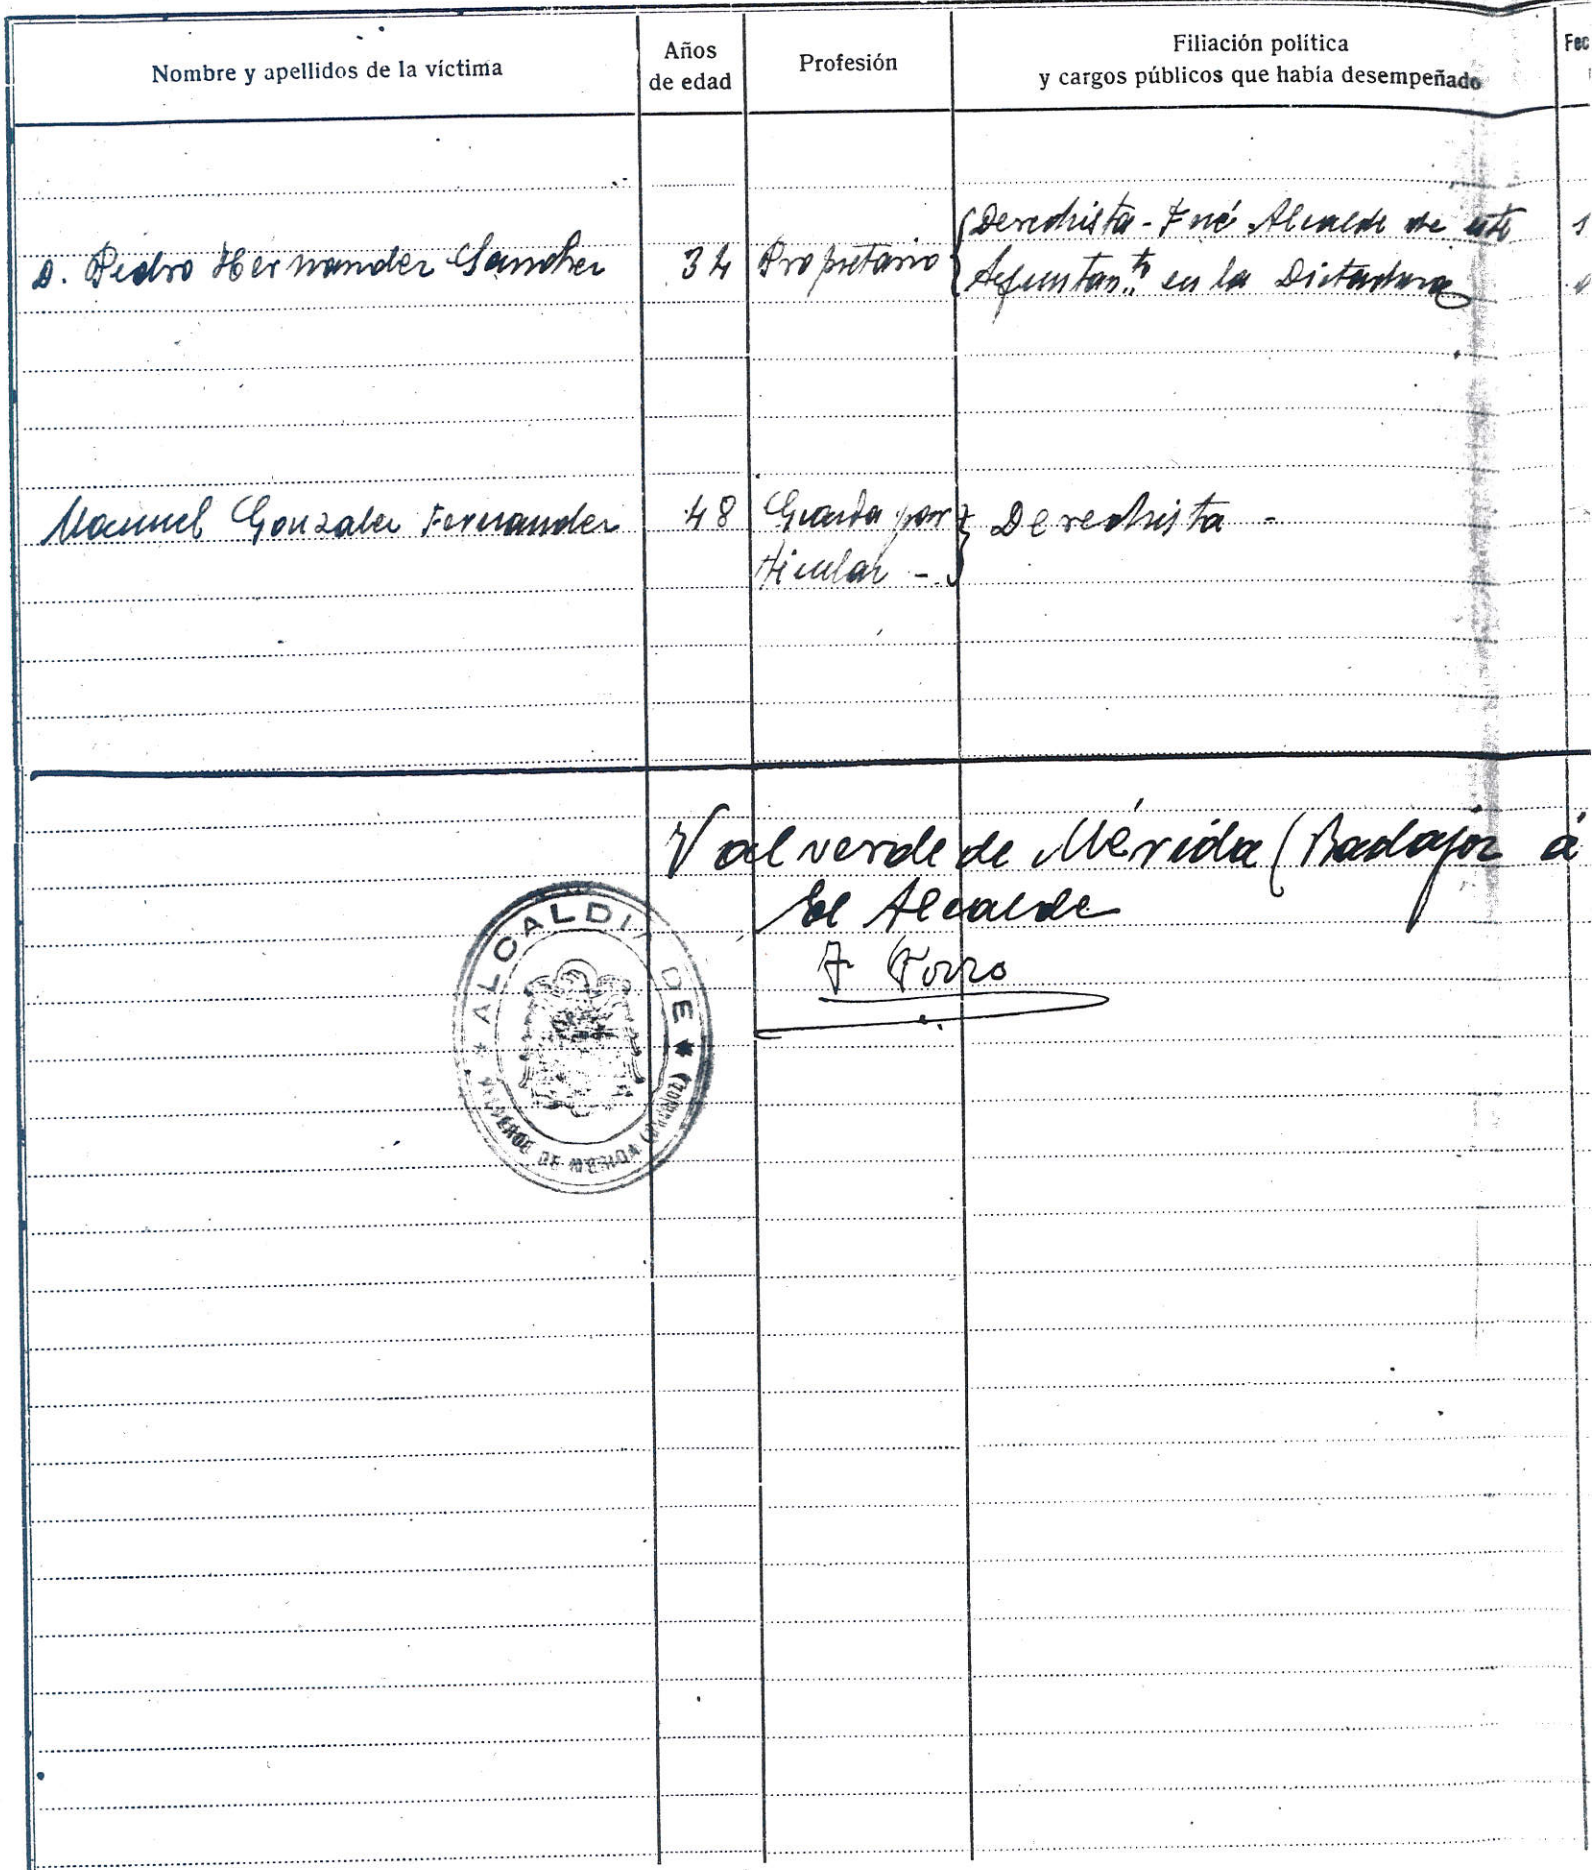 Nombre y apellidos de la víctima
Años
de edad
Profesión
Filiación política
y cargos públicos que había desempeñado
Fec
D. Pedro Hernandez Sanchez
34
Propietario
Derechista - Fué Alcalde de este
Ayuntan.to en la Dictadura
Manuel Gonzalez Fernandez
48
Guarda par
ticular -
Derechista -
Valverde de Mérida (Badajoz á
El Alcalde
ALCALDIA DE
VALVERDE DE MERIDA (BADAJOZ)